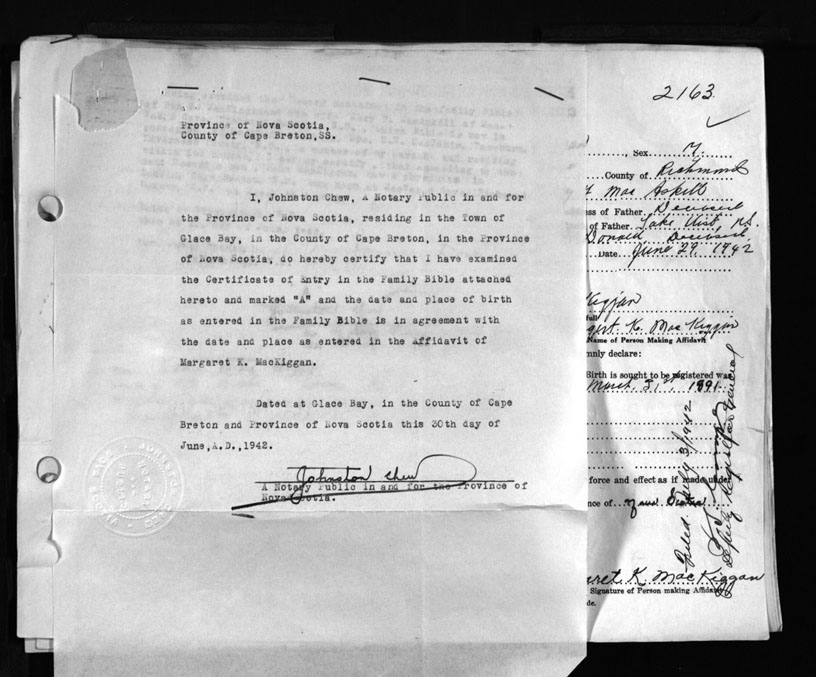 Province of Nova Scotia,
County of Cape Breton,SS.
I, Johnston Chew, A Notary Public in and for
the Province of Nova Scotia, residing in the Town of
Glace Bay, in the County of Cape Breton, in the Province
of Nova Scotia, do hereby certify that I have examined
the Certificate of Entry in the Family Bible attached
hereto and marked "A" and the date and place of birth
as entered in the Family Bible is in agreement with
the date and place as entered in the Affidavit of
Margaret K. MacKiggan.
Dated at Glace Bay, in the County of Cape
Breton and Province of Nova Scotia this 30th day of
June,A.D.,1942.
Johnston Chew
A Notary Public in and for the Province of
Nova Scotia.
2163
, Sex
County of Richmond
Mac Askill
ss of Father Deceased
of Father
Donald, Deceased,
Date June 29, 1942
full
K. Mac Kiggan
Name of Person Making Affidavit
mnly declare:
Birth is sought to be registered was
March 31st 1891
force and effect as if made under
nce of Nova Scotia
aret K. MacKiggan
Signature of Person making Affidavit
de.
Filed July 3/1942
Deputy Registrar General